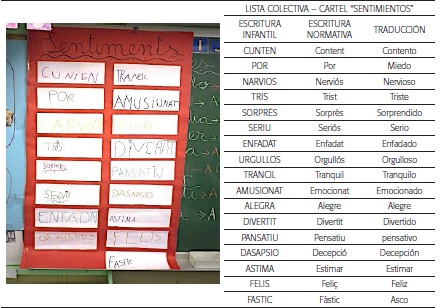 Sentiments
CUNTEN
TRANCIL
POR
AMUSIONAT
TRIS
DIVERTIT
SORPRÉS
PANSATIU
SERIU
DASAPSIO
ENFADAT
ASTIMA
FELIS
FASTIC
LISTA COLECTIVA – CARTEL "SENTIMIENTOS"
ESCRITURA INFANTIL ESCRITURA NORMATIVA TRADUCCIÓN
CUNTEN Content Contento
POR Por Miedo
NARVIOS Nerviós Nervioso
TRIS Trist Triste
SORPRÉS Sorprès Sorprendido
SERIU Seriós Serio
ENFADAT Enfadat Enfadado
URGULLOS Orgullós Orgulloso
TRANCIL Tranquil Tranquilo
AMUSIONAT Emocionat Emocionado
ALEGRA Alegre Alegre
DIVERTIT Divertit Divertido
PANSATIU Pensatiu pensativo
DASAPSIO Decepció Decepción
ASTIMA Estimar Estimar
FELIS Feliç Feliz
FASTIC Fàstic Asco